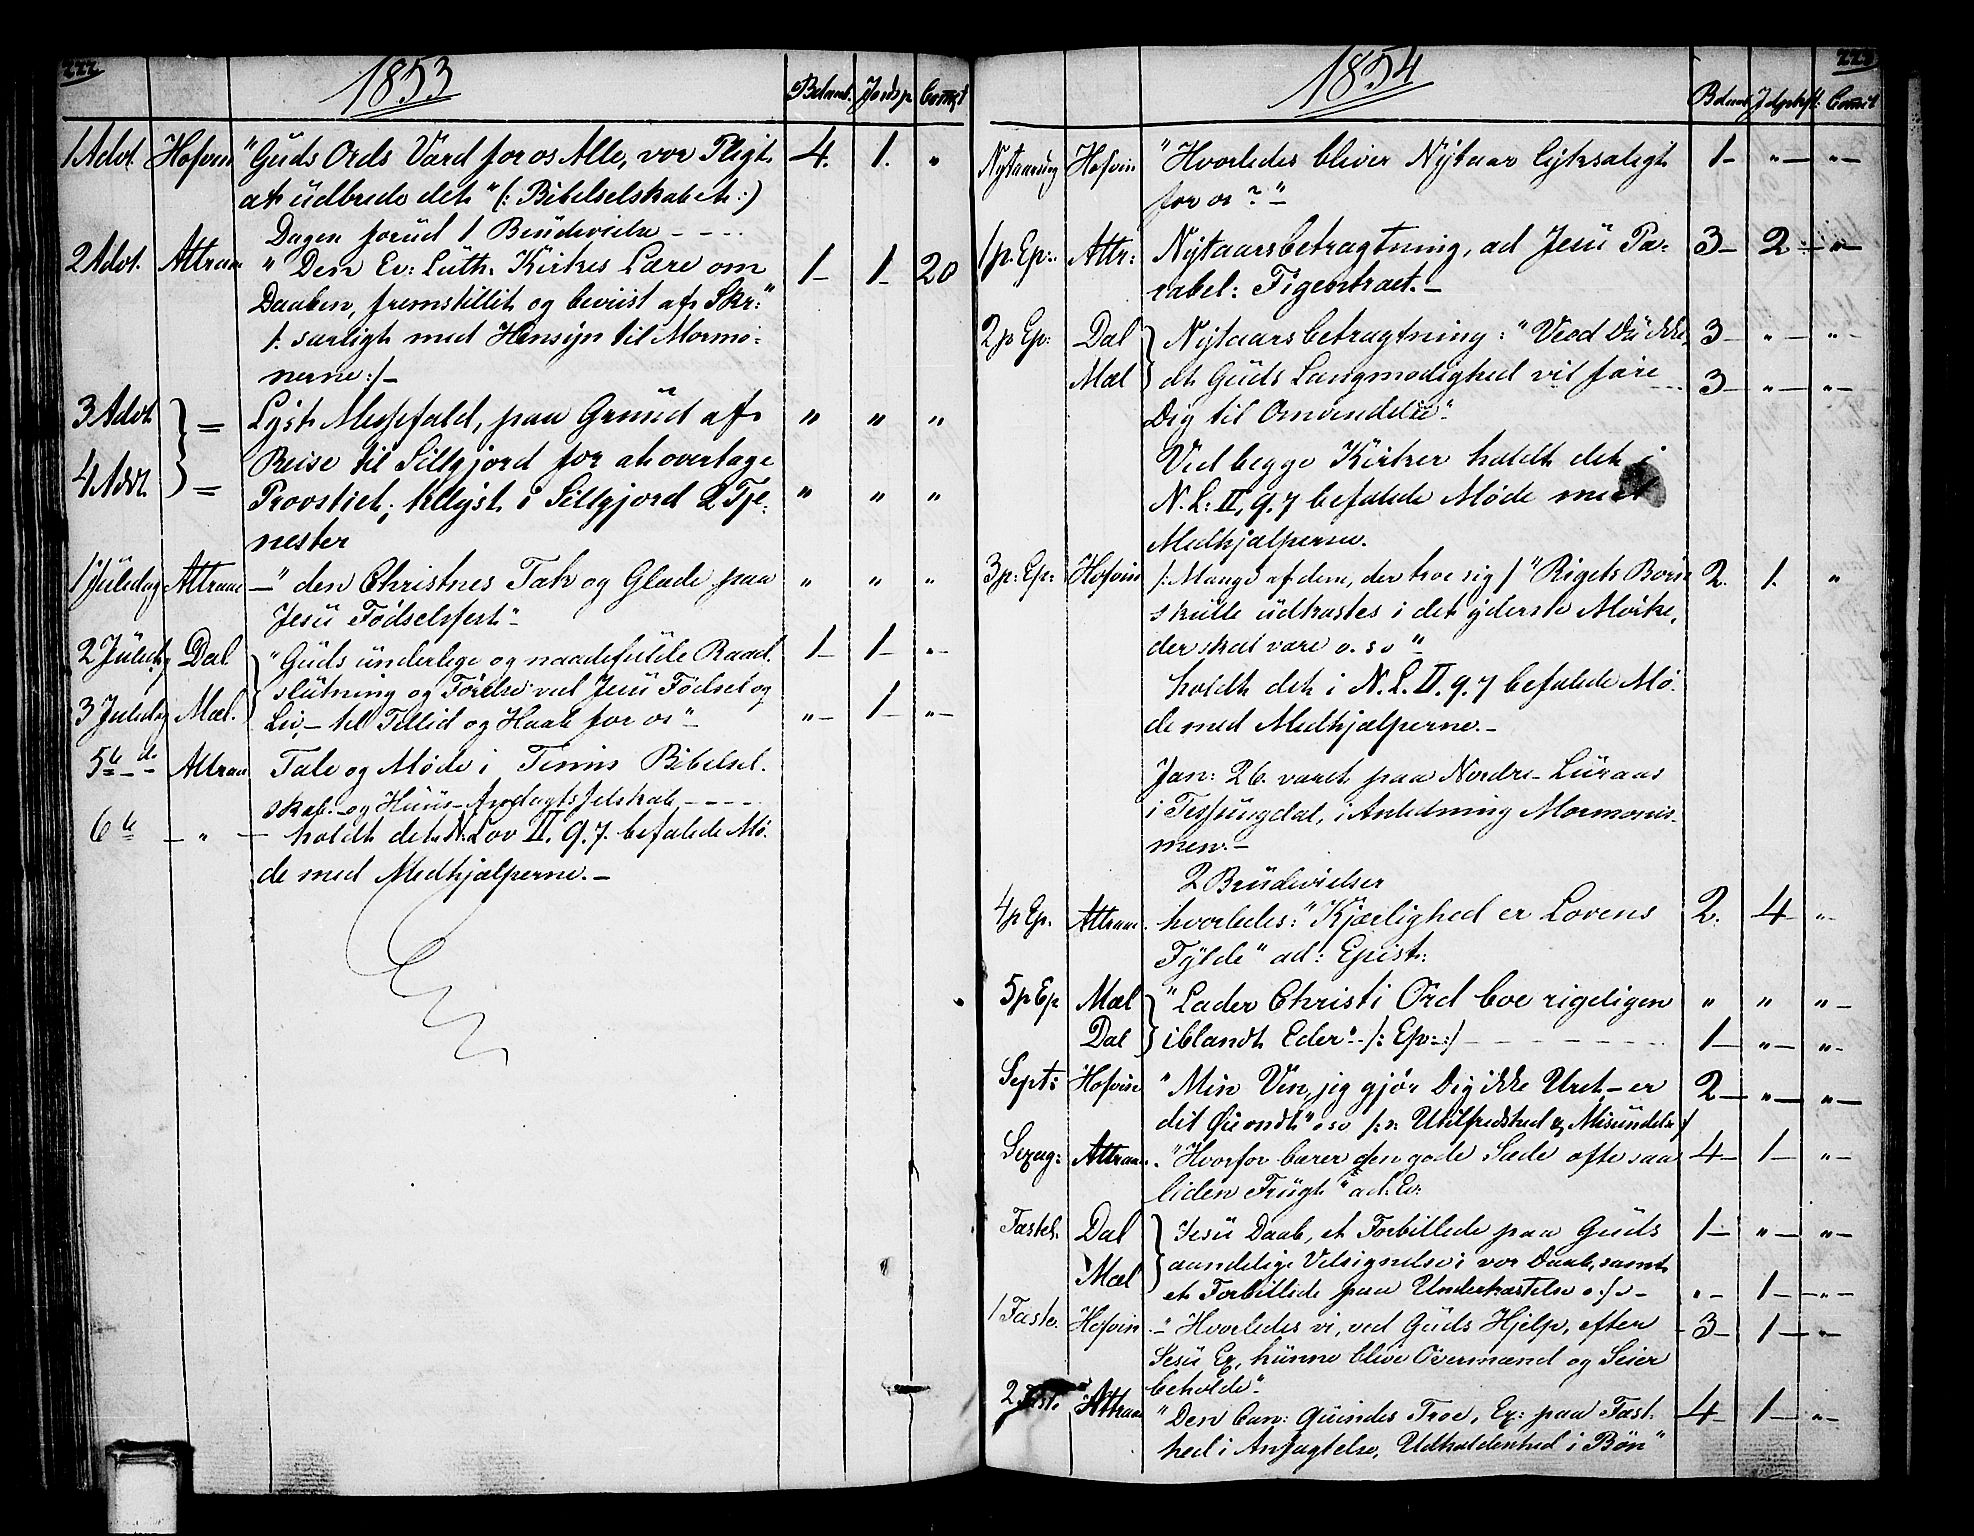 222
1853
Bdaab. Jordsp Comt
1 Advt. Hofvin "Guds Ords Værd for os Alle, vor Pligt 4. 1. "
at udbrede det" (: Bibelselskabet :)
Dagen forud 1 Brudevielse - - - -
2 Advt. Attraae " Den Ev: Luth: Kirkes Lære om 1- 1- 20
Daaben, fremstillet og beviist af Skr:"
/: særligt med Hensyn til Mormo-
nerne :/-
3 Advt = Lyst Messefald, paa Grund af " " "
Reise til Sillgjord for at overtage
4 Advt = Provstiet; tillyst i Sillgjord 2 Tje- " " "
nester
1 Juledag Attraae -" den Christnes Tak og Glæde paa " " "
Jesu Fødselsfest"
2 Juledg Dal "Guds underlige og naadefulde Raad- 1- 1- "-
slutning og Førelse ved Jesu Fødsel og
3 Juledg Mæl. Liv,- til Tillid og Haab for os"- "- 1- "-
5te do Attraae Tale og Møde i Tinns Bibelsel-
skab- og Huus-Andagtsselskab - - - -
6te - " - holdt det N. Lov II. 9. 7. befalede Mø-
de med Medhjælperne.-
1854
223
Bdaab Jdpkft: Comt
Nytaarsdg Hofvin "Hvorledes bliver Nytaar lyksaligt 1- "- "-
for os?"-
1 p: Ep: Attr: Nytaarsbetragtning, ad Jesu Pa- 3- 2- "-
rabel: Figentræet.-
2 p Ep: Dal Nytaarsbetragtning: "Veed Du ikke, 3- "- "-
Mæl at Guds Langmodighed vil føre 3- "- "-
Dig til Omvendelse"
Ved begge Kirker holdt det i
N. L: II, 9. 7 befalede Møde med
Medhjælperne.
3 p: Ep: Hofvin /: Mange af dem, der troe sig / "Rigets Børn 2. 1. "
skulle udkastes i det yderste Mørke,
der skal være o. s v "
holdt det i N. L. II. 9. 7 befalede Mø-
de med Medhjælperne.-
Jan: 26. været paa Nordre- Luraas
i Tessungdal, i Anledning Mormonis-
men.-
2 Brudevielser
4 p Ep. Attraae hvorledes: "Kjærlighed er Lovens 2. 4- "-
Fylde" ad: Epist:
5 p Ep Mæl "Lader Christi Ord boe rigeligen " " "-
Dal iblandt Eder" /: Ep :/ - - - - 1- "- "-
Sept: Hofvin "Min Ven, jeg gjør Dig ikke Uret - er 2- "- "-
dit Øie ondt" osv /: Utilfredshed og Misundelse /
Sexag: Attraae "Hvorfor bærer den gode Sæde ofte saa 4- 1- "-
liden Frugt" ad: Ev:
Fastel. Dal Jesu Daab, et Forbillede paa Guds 1- "- "-
aandelige Velsignelse i vor Daab, samt
Mæl et Forbillede paa Underkastelse "- 1- "-
1 Faste. Hofvin "Hvorledes vi, ved Guds Hjelp, efter 3- 1- "-
Jesu Ex, kunne blive Overmænd og Seier
beholde"
2 Fast. Attraae "Den Can: Quindes Troe, Ex: paa Fast- 4- 1- "-
hed i Anfægtelse, Udholdenhed i Bøn"